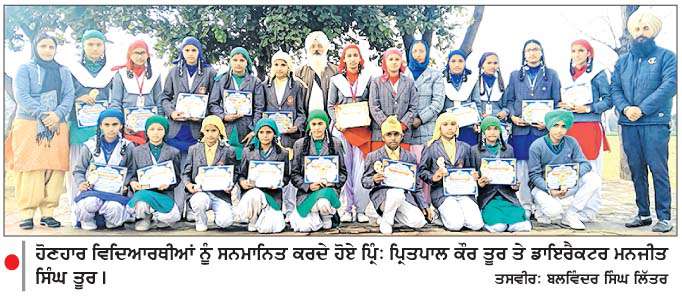 ਹੋਣਹਾਰ ਵਿਦਿਆਰਥੀਆਂ ਨੂੰ ਸਨਮਾਨਿਤ ਕਰਦੇ ਹੋਏ ਪ੍ਰਿੰ: ਪ੍ਰਿਤਪਾਲ ਕੌਰ ਤੂਰ ਤੇ ਡਾਇਰੈਕਟਰ ਮਨਜੀਤ
ਸਿੰਘ ਤੂਰ।
ਤਸਵੀਰ: ਬਲਵਿੰਦਰ ਸਿੰਘ ਲਿੱਤਰ